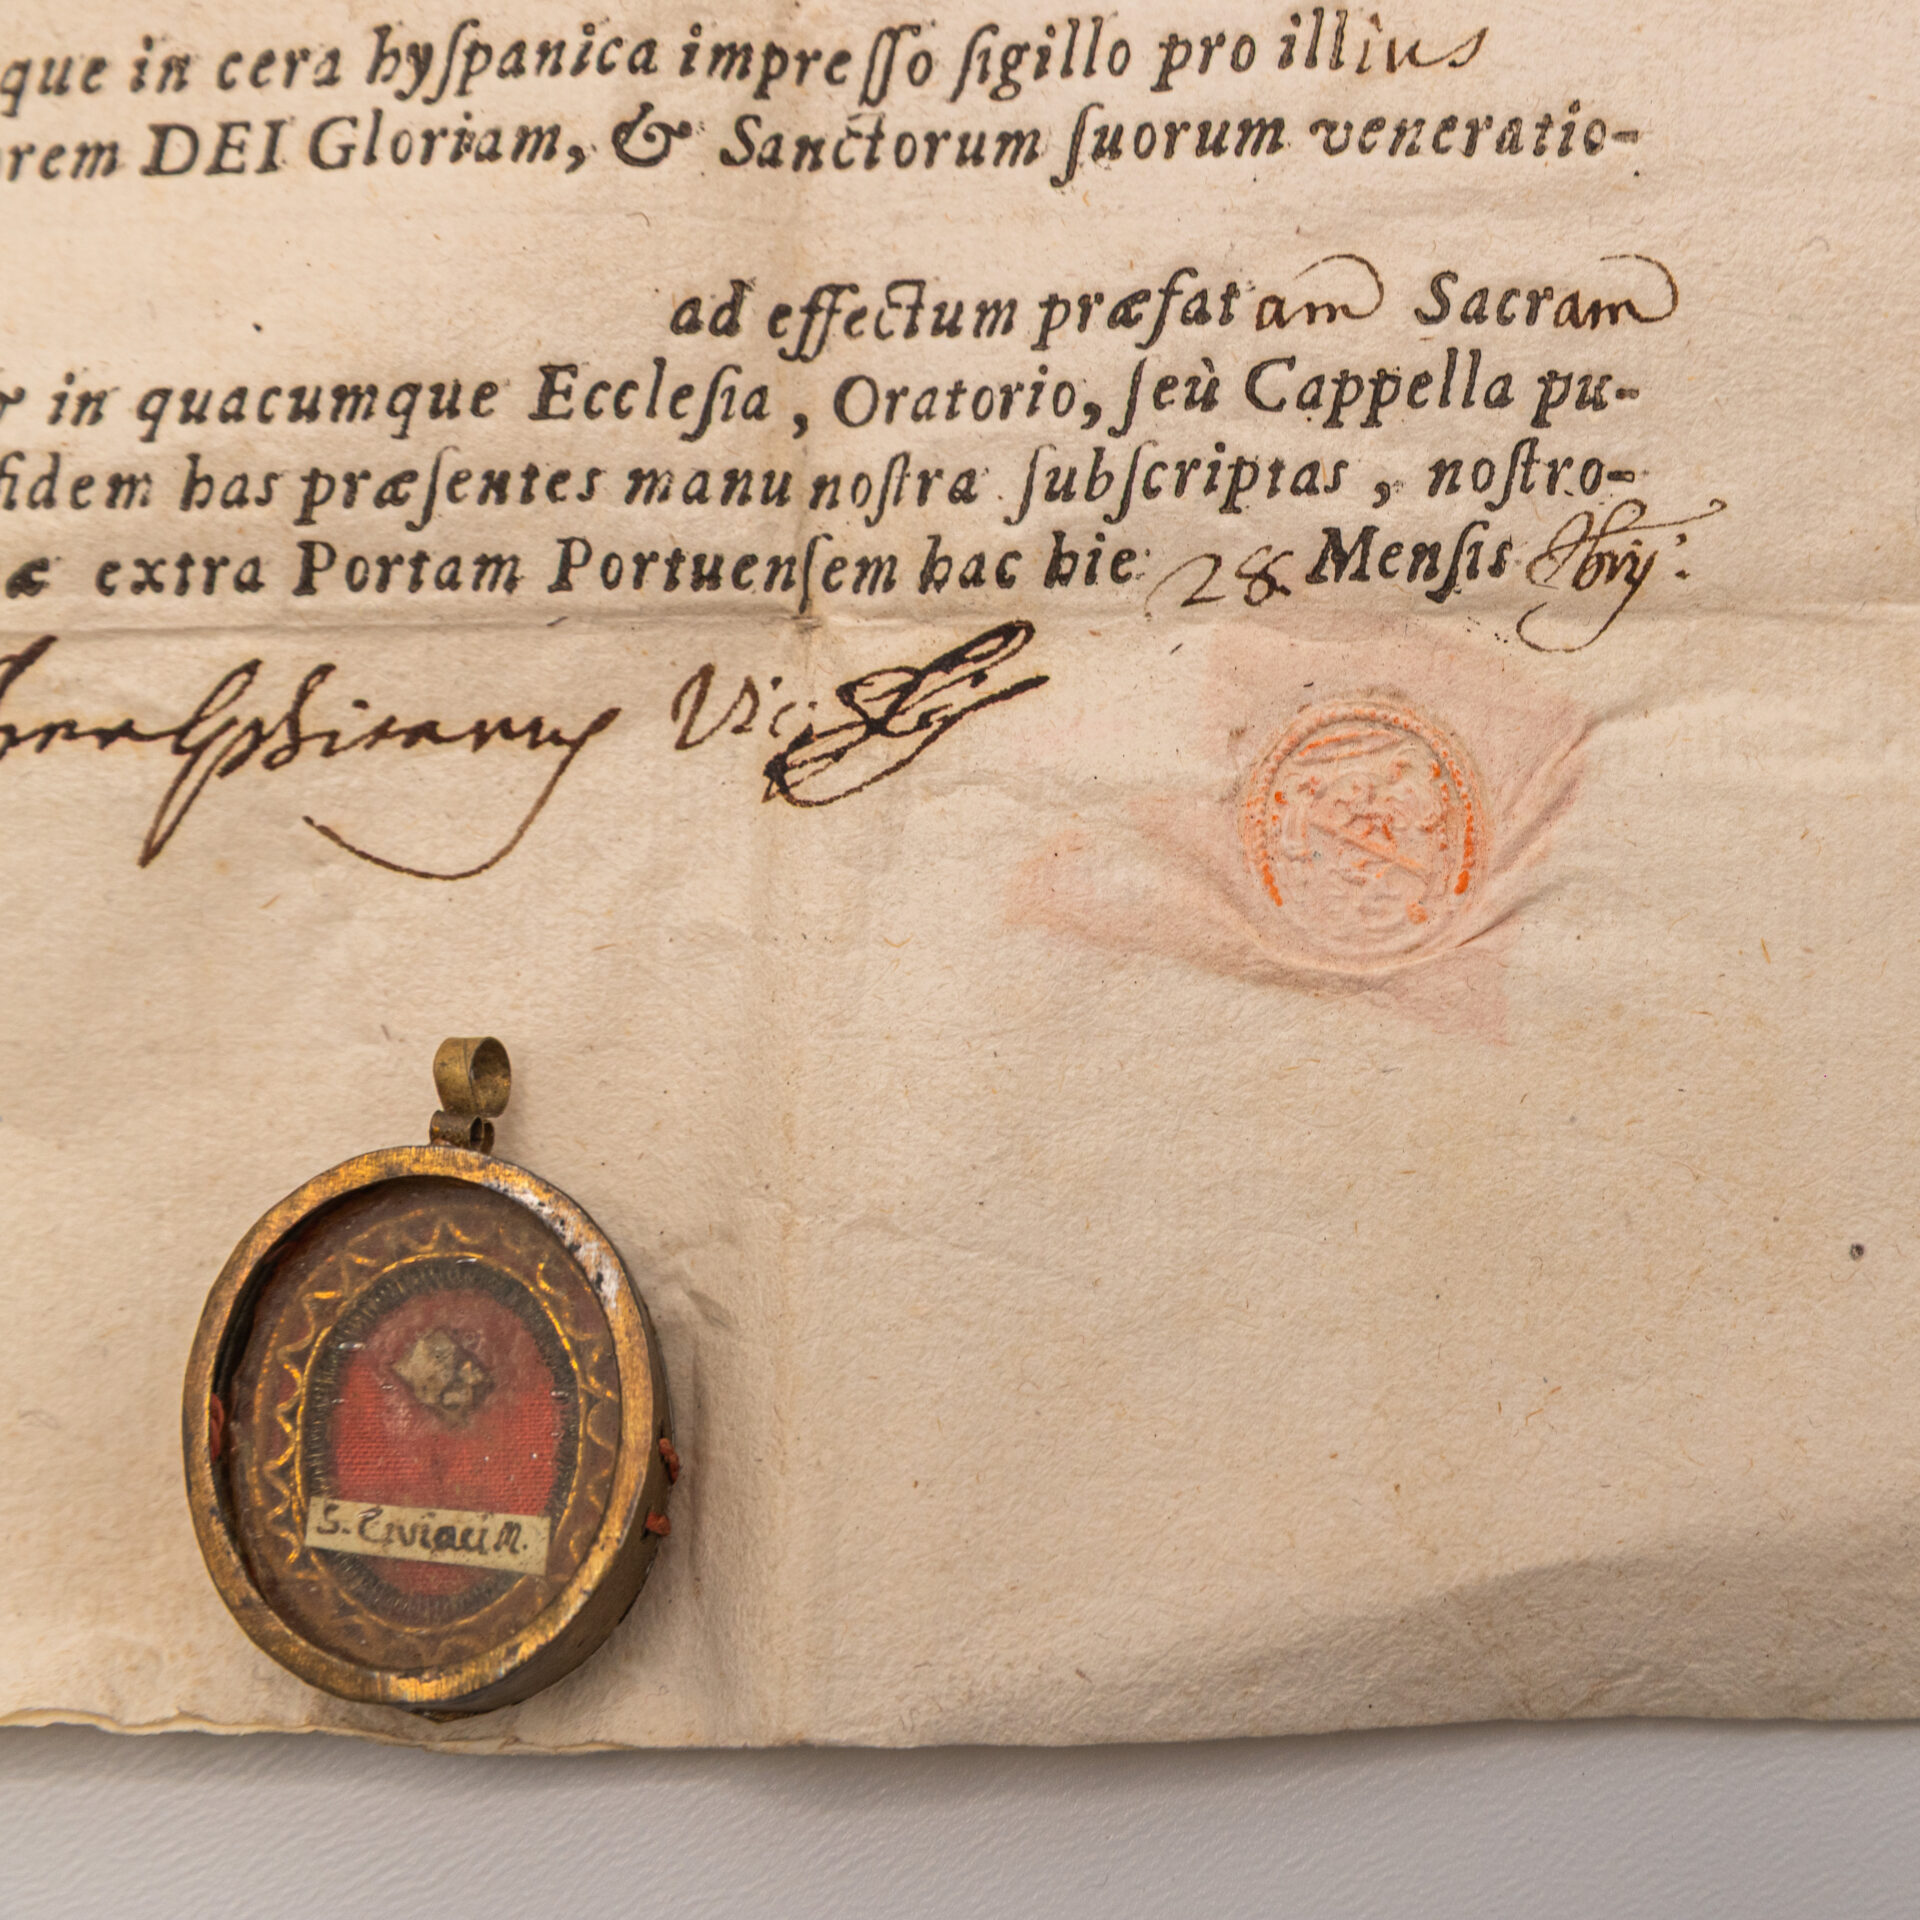 que in cera hyſpanica impreſſo ſigillo pro illius
orem DEI Gloriam, & Sanctorum ſuorum veneratio-
ad effectum præfatam Sacram
& in quacumque Ecclesia, Oratorio, ſeù Cappella pu-
fidem has præſentes manu noſtra ſubſcriptas, noſtro-
æ extra Portam Portuenſem hac hie 28 Menſis
Vic
S. Civiaci M.